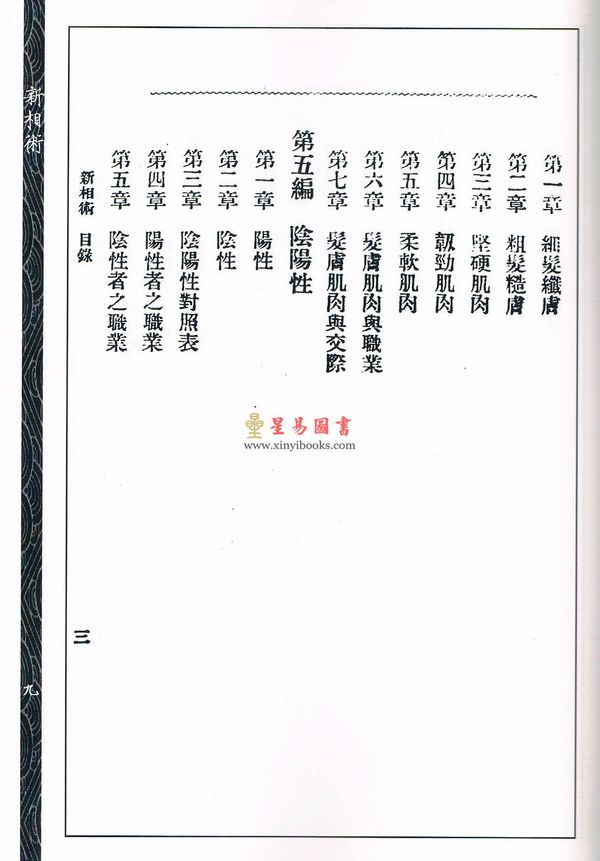 第一章 細髮纖膚
第二章 粗髮糙膚
第三章 堅硬肌肉
第四章 韌勁肌肉
第五章 柔軟肌肉
第六章 髮膚肌肉與職業
第七章 髮膚肌肉與交際
第五編 陰陽性
第一章 陽性
第二章 陰性
第三章 陰陽性對照表
第四章 陽性者之職業
第五章 陰性者之職業
新相術 目錄
三
新相術
九
星易圖書
www.xinyibooks.com